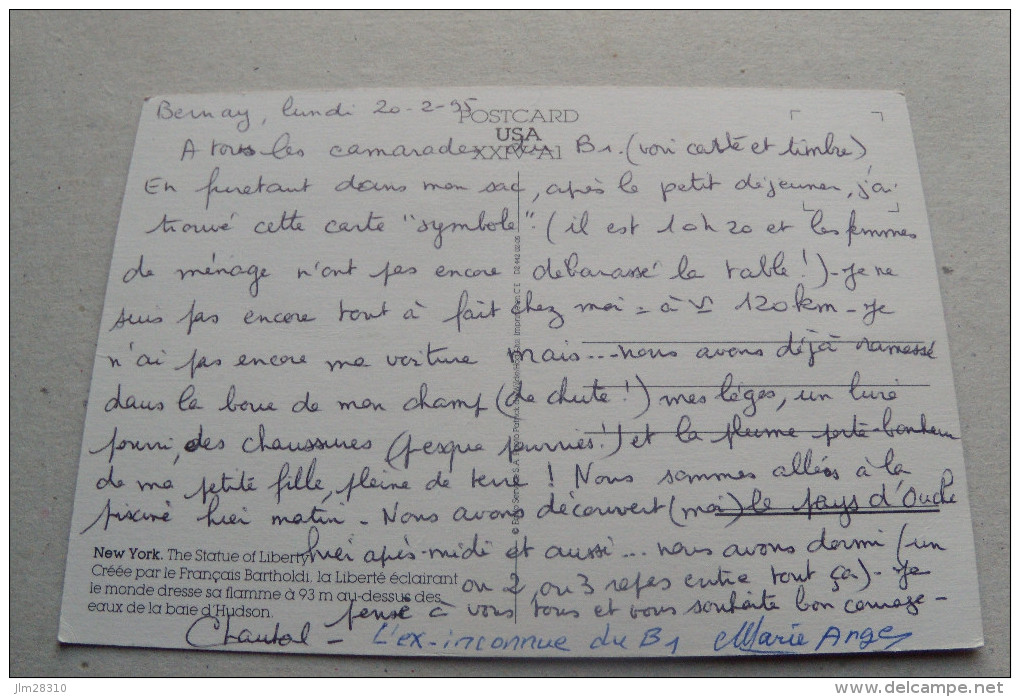 Bernay, lundi 20-2-95
POSTCARD
USA
XXIV-A1
A tous les camarades du B1. (voir carte et timbre)
En furetant dans mon sac, après le petit déjeuner, j'ai
trouvé cette carte "symbole". (il est 10h20 et les femmes
de ménage n'ont pas encore débarassé la table!) - Je ne
suis pas encore tout à fait chez moi = à 120 km - Je
n'ai pas encore ma voiture mais... nous avons déjà ramassé
dans la boue de mon champ (de chute!) mes lèges, un livre
pourri, des chaussures (presque pourries!) et la plume porte-bonheur
de ma petite fille, pleine de terre! Nous sommes allées à la
piscine hier matin - Nous avons découvert (moi) le pays d'Ouche
hier après-midi et aussi... nous avons dormi (un
ou 2 ou 3 repas entre tout ça) - Je
pense à vous tous et vous souhaite bon courage -
Chantal - L'ex-inconnue du B1 Marie Ange
New York. The Statue of Liberty
Créée par le Français Bartholdi, la Liberté éclairant
le monde dresse sa flamme à 93 m au-dessus des
eaux de la baie d'Hudson.
jlm28310
www.delcampe.net